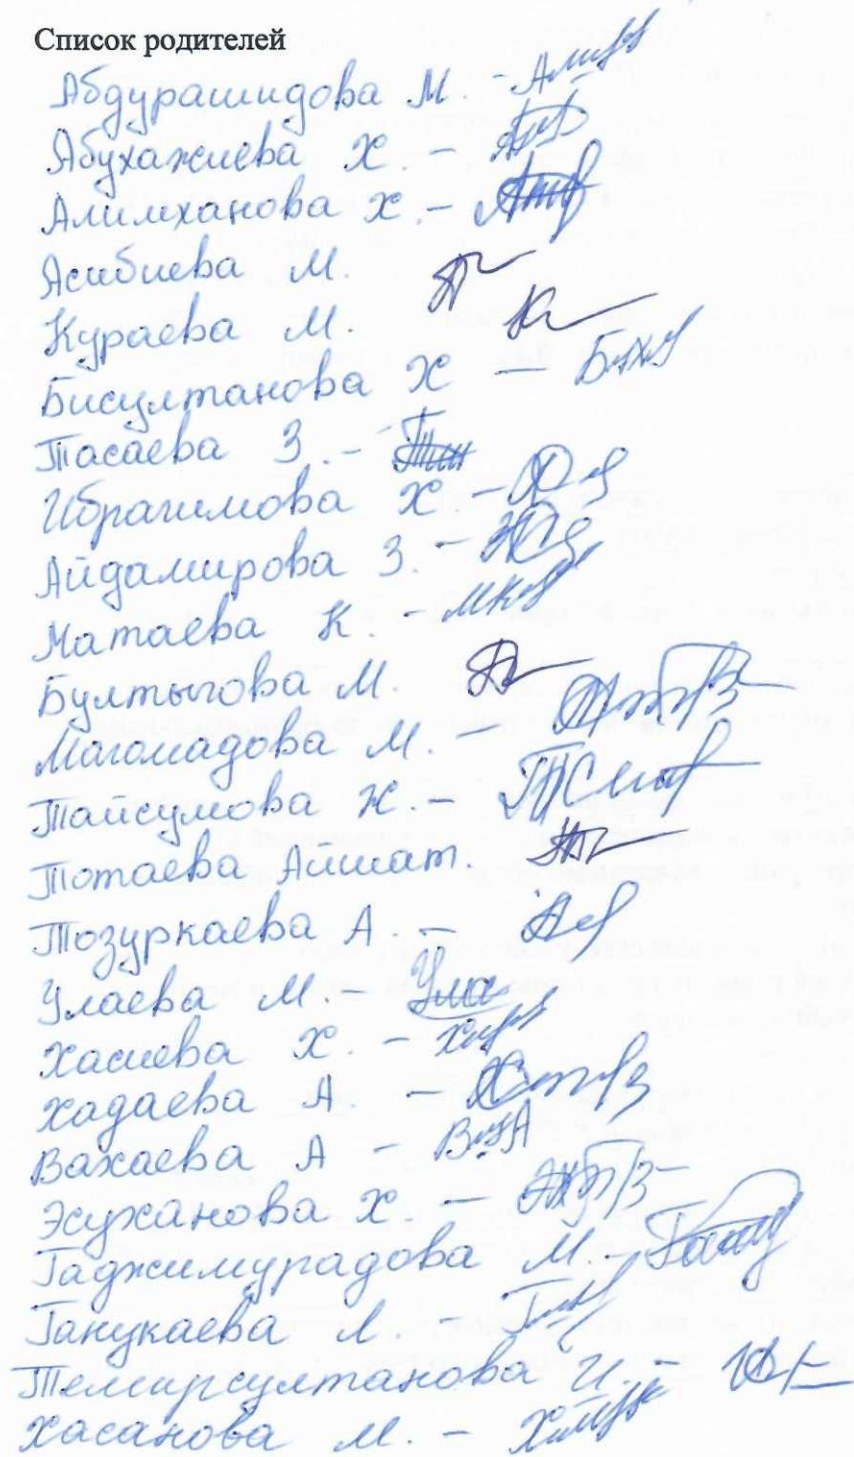 Список родителей
Абдурашидова М. -
Абухажиева Х. -
Алимханова Х. -
Асибиева М.
Кураева М.
Бисултанова Х -
Тасаева З. -
Ибрагимова Х -
Айдамирова З. -
Матаева К. -
Бултыгова М.
Магомадова М. -
Тайсумова Ж. -
Тотаева Айшат.
Тозуркаева А. -
Улаева М. -
Хасиева Х. -
Хадаева А. -
Вахаева А -
Эсуханова Х. -
Гаджимурадова М. -
Ганукаева Л. -
Темирсултанова И. -
Хасанова М. -